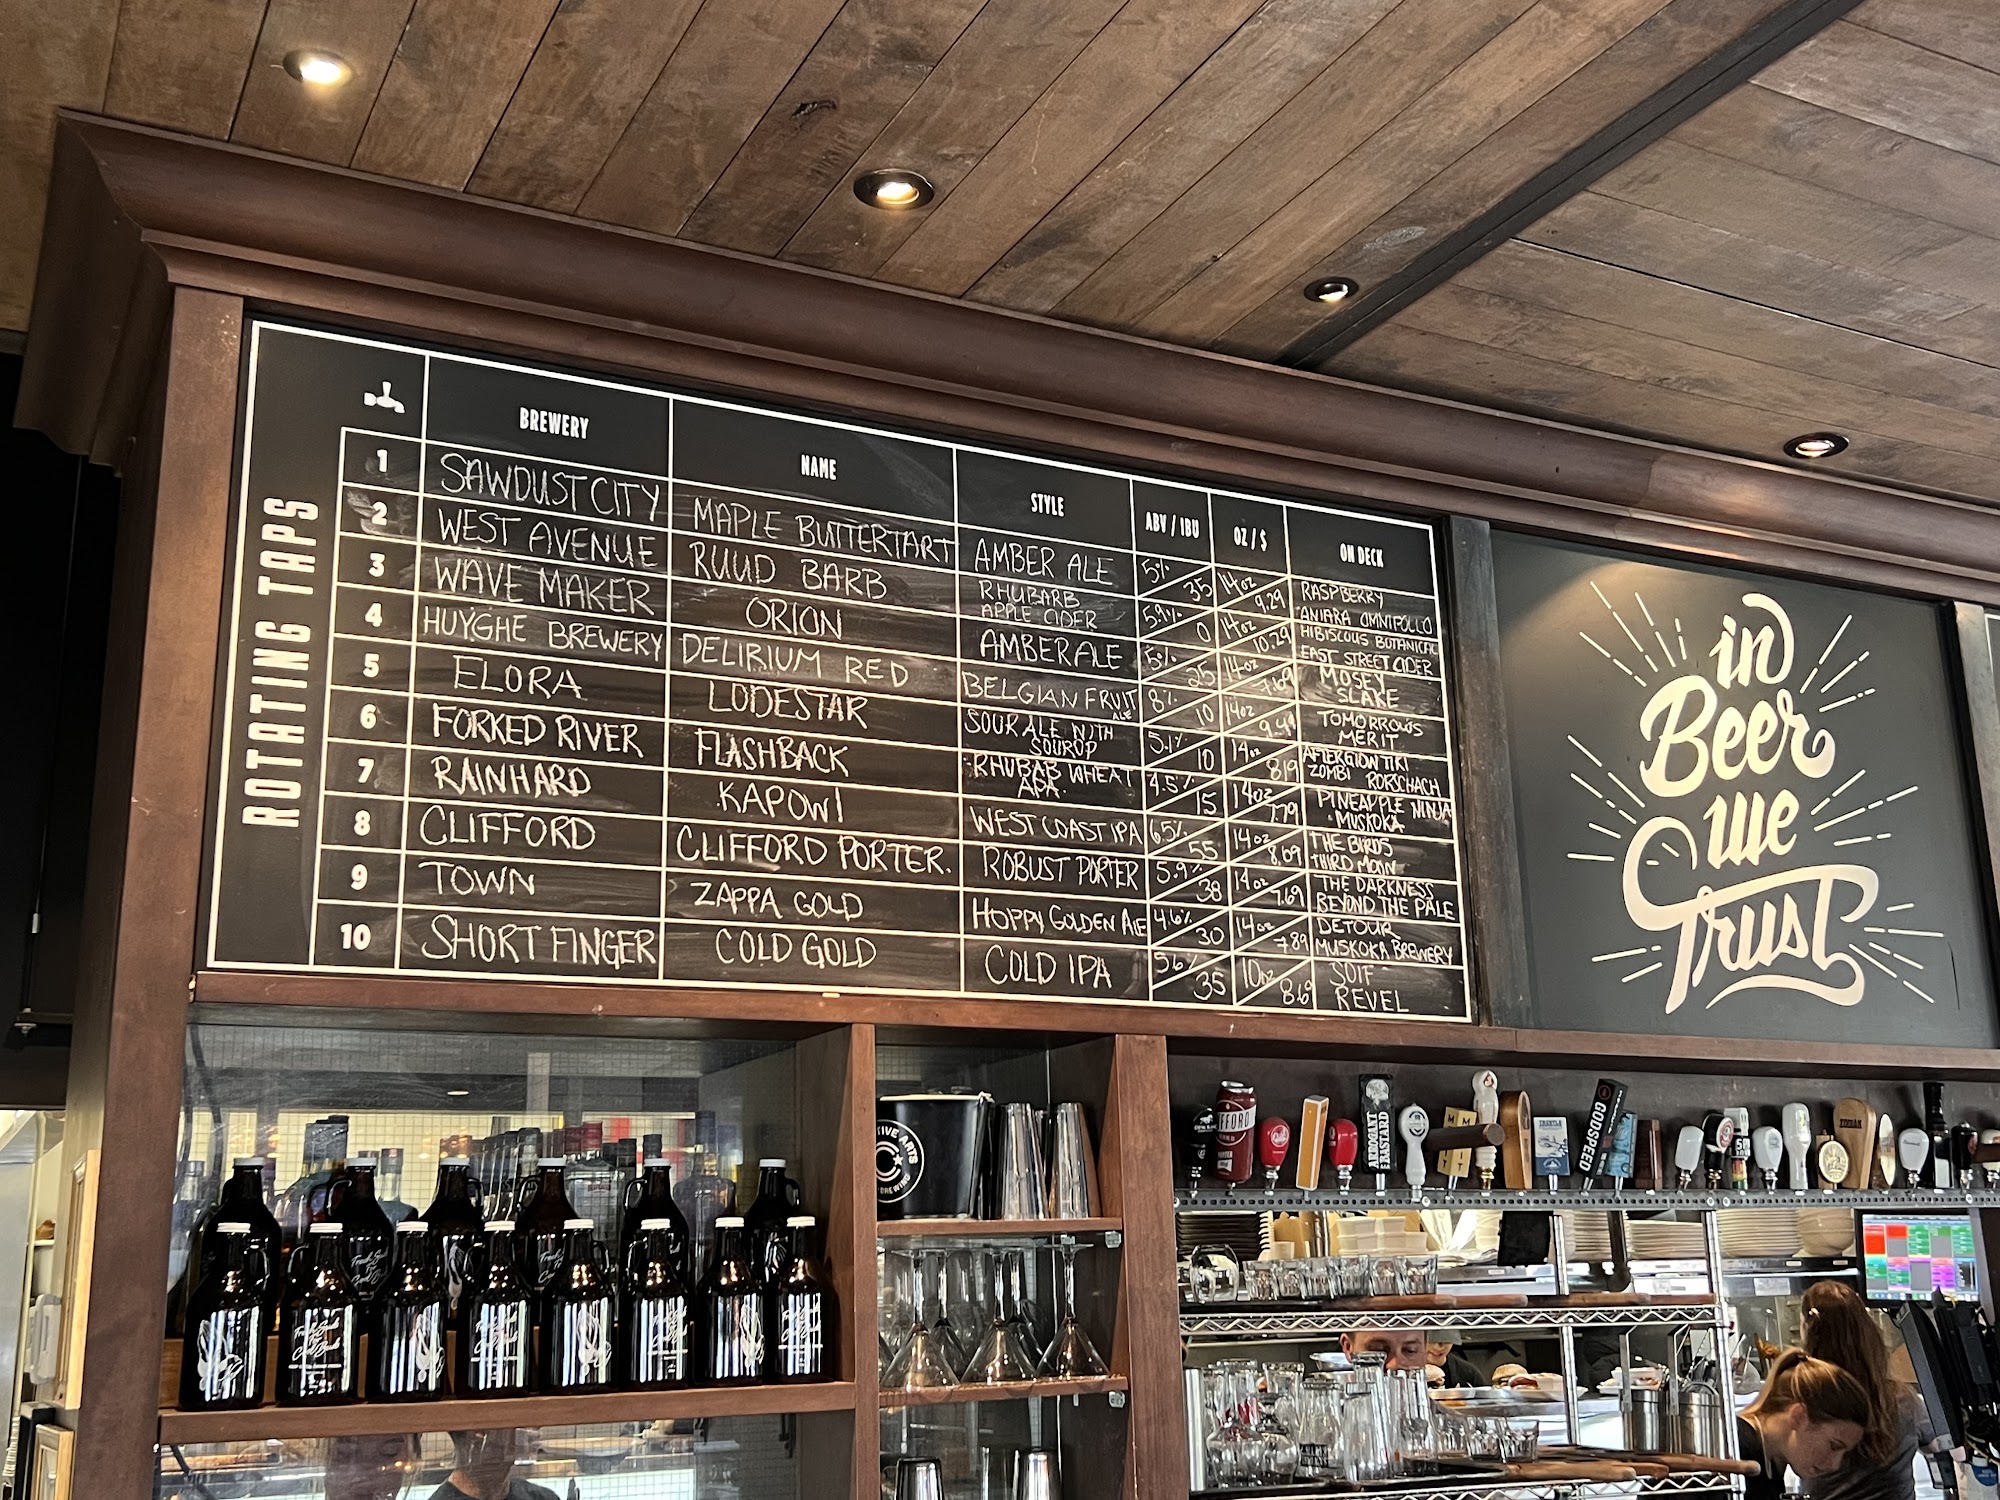 ROTATING TAPS
BREWERY NAME STYLE ABV / IBU OZ / $ ON DECK
1 SAWDUST CITY MAPLE BUTTERTART AMBER ALE 5% 35 14oz 9.29 RASPBERRY
ANIARA OMNIPOLLO
2 WEST AVENUE RUUD BARB RHUBARB
APPLE CIDER 5.9% 0 14oz 10.29 HIBISCOUS BOTANICAL
EAST STREET CIDER
3 WAVE MAKER ORION AMBER ALE 5% 25 14oz 7.69 MOSEY
SLAKE
4 HUYGHE BREWERY DELIRIUM RED BELGIAN FRUIT
ALE 8% 10 14oz 9.49 TOMORROWS
MERIT
5 ELORA LODESTAR SOUR ALE WITH
SOUROP 5.1% 10 14oz 8.19 AFTERGLOW TIKI
ZOMBI RORSCHACH
6 FORKED RIVER FLASHBACK RHUBAB WHEAT
APA 4.5% 15 14oz 7.79 PINEAPPLE NINJA
MUSKOKA
7 RAINHARD KAPOW! WEST COAST IPA 6.5% 55 14oz 8.09 THE BIRDS
THIRD MOON
8 CLIFFORD CLIFFORD PORTER. ROBUST PORTER 5.9% 38 14oz 7.69 THE DARKNESS
BEYOND THE PALE
9 TOWN ZAPPA GOLD HOPPY GOLDEN ALE 4.6% 30 14oz 7.89 DETOUR
MUSKOKA BREWERY
10 SHORT FINGER COLD GOLD COLD IPA 5.6% 35 10oz 8.69 SOIF
REVEL
in
Beer
we
Trust
GODSPEED
BASTARD
KODIAK